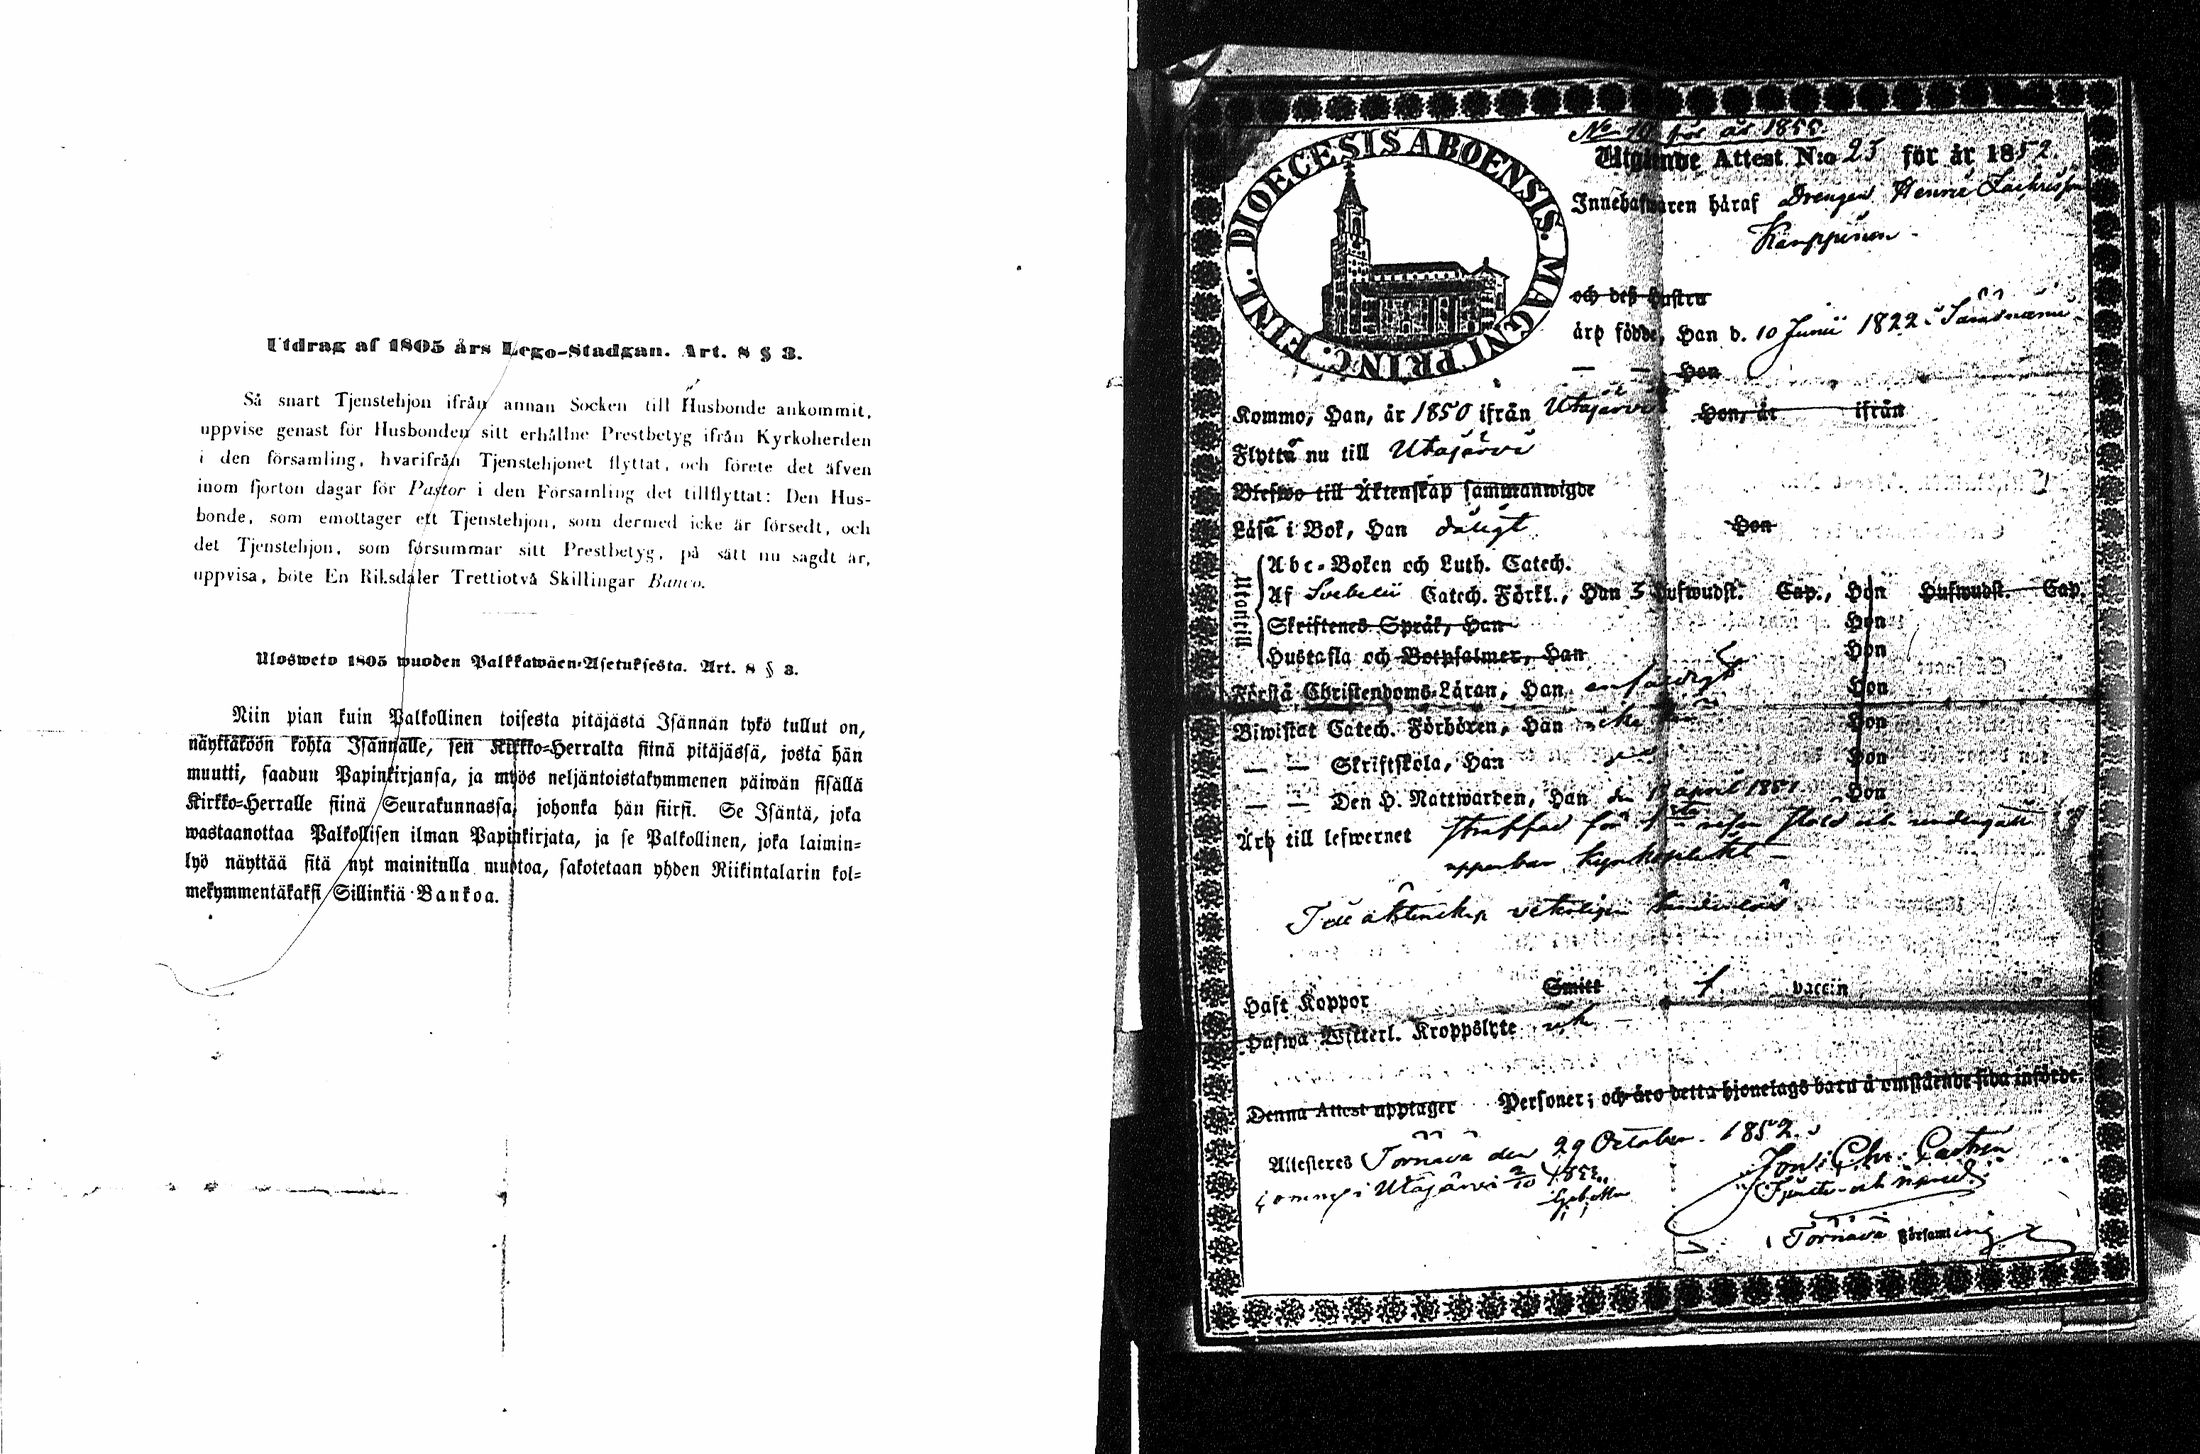 Utdrag af 1805 års Lego-Stadgan. Art. 8 § 3.
Så snart Tjenstehjon ifrån annan Socken till Husbonde ankommit,
uppvise genast för Husbonden sitt erhållne Prestbetyg ifrån Kyrkoherden
i den församling, hvarifrån Tjenstehjonet flyttat, och förete det äfven
inom fjorton dagar för Pastor i den Församling det tillflyttat: Den Hus-
bonde, som emottager ett Tjenstehjon, som dermed icke är försedt, och
det Tjenstehjon, som försummar sitt Prestbetyg, på sätt nu sagdt är,
uppvisa, böte En Riksdaler Trettiotvå Skillingar Banco.
Ulosweto 1805 wuoden Palkkawäen-Asetuksesta. Art. 8 § 3.
Niin pian kuin Palkollinen toisesta pitäjästä Isännän tykö tullut on,
näyttäköön kohta Isännälle, sen Kirkko-Herralta siinä pitäjässä, josta hän
muutti, saadun Papinkirjansa, ja myös neljäntoistakymmenen päiwän sisällä
Kirkko-Herralle siinä Seurakunnassa, johonka hän siirsi. Se Isäntä, joka
wastaanottaa Palkollisen ilman Papinkirjata, ja se Palkollinen, joka laimin-
lyö näyttää sitä nyt mainitulla muotoa, sakotetaan yhden Riikintalarin kol-
mekymmentäkaksi Sillinkiä Bankoa.
DIOECESIS ABOENSIS. MAGNI PRINC. FINL.
No för år 1855
Utgånde Attest N:o 25 för år 1852.
Innehafwaren häraf Drengen Henric Zachrisson
Karppinen
och deß hustru
äro födde, Han d. 10 Junii 1822 i Säräsniemi
— — Hon
Kommo, Han, år 1850 ifrån Utajärvi Hon, år ifrån
Flytta nu till Utajärvi
Blefwo till Äktenskap sammanwigde
Läsa i Bok, Han dåligt Hon
Utantill
Abc-Boken och Luth. Catech.
Af Svebelii Catech. Förkl., Han 3 Hufwudst. Cap., Hon Hufwudst. Cap.
Skriftenes Språk, Han Hon
Hustafla och Botpsalmer, Han Hon
Förstå Christendoms-Läran, Han enfaldigt Hon
Biwistat Catech. Förhören, Han Hon
— — Skriftskola, Han Hon
— — Den H. Nattwarden, Han den 13 april 1851 Hon
Äro till lefwernet straffad för resan stöld och undergått
uppenbar kyrkoplikt —
Till äktenskap veterligen hinderlös
Haft Koppor Smitt vaccin
Hafwa Witterl. Kroppslyte
Denna Attest upptager Personer; och äro detta hjonelags barn å omstående sida införde.
Attesteras Törnävä den 29 October 1852.
Utajärvi
Joh: Chr. Castrén
i Törnävä Församling